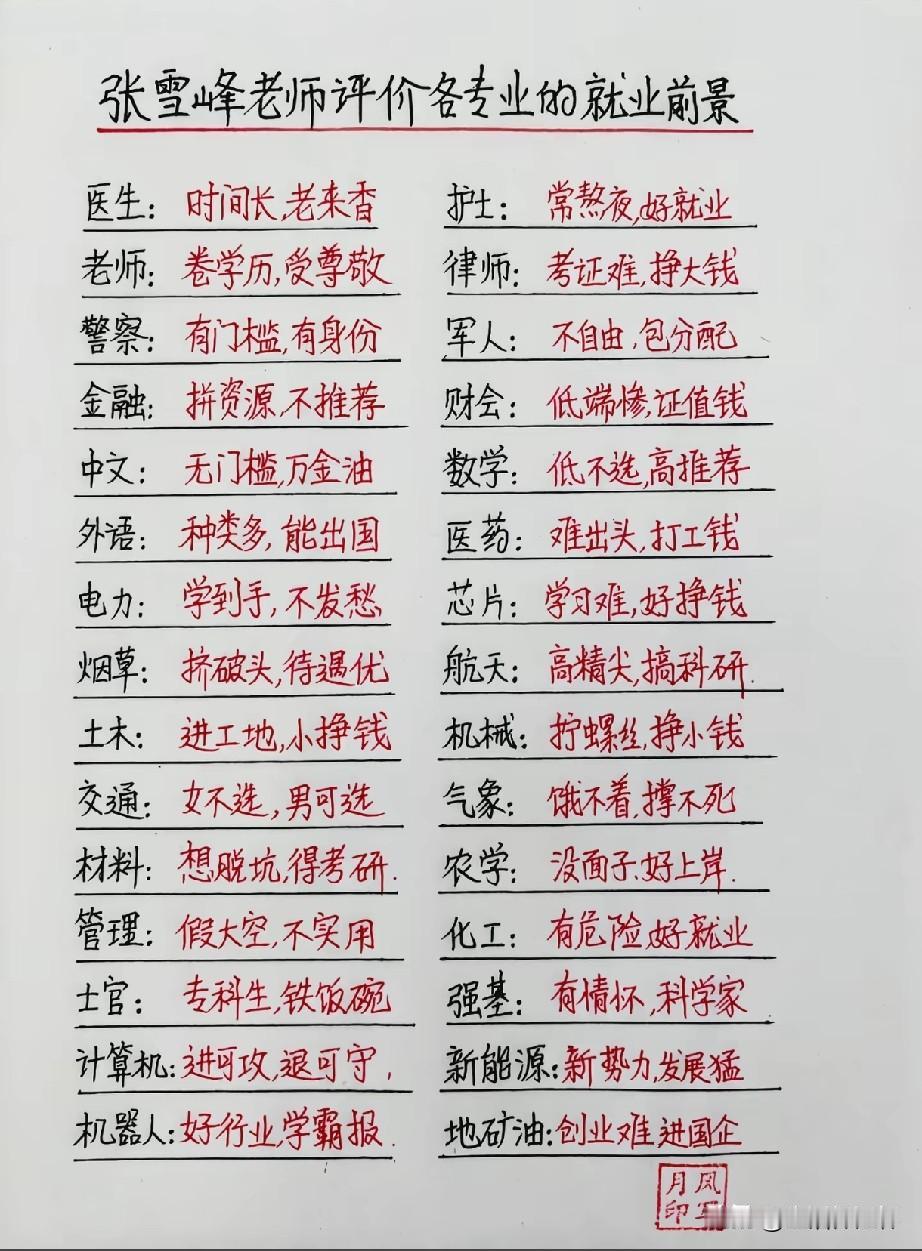 张雪峰老师评价各专业的就业前景
医生：时间长，老来香
护士：常熬夜，好就业
老师：卷学历，受尊敬
律师：考证难，挣大钱
警察：有门槛，有身份
军人：不自由，包分配
金融：拼资源，不推荐
财会：低端惨，证值钱
中文：无门槛，万金油
数学：低不选，高推荐
外语：种类多，能出国
医药：难出头，打工钱
电力：学到手，不发愁
芯片：学习难，好挣钱
烟草：挤破头，待遇优
航天：高精尖，搞科研.
土木：进工地，小挣钱
机械：拧螺丝，挣小钱
交通：女不选，男可选
气象：饿不着，撑不死
材料：想脱坑，得考研.
农学：没面子、好上岸.
管理：假大空，不实用
化工：有危险，好就业
士官：专科生，铁饭碗
强基：有情怀，科学家
计算机：进可攻，退可守，
新能源：新势力，发展猛
机器人：好行业，学霸报.
地矿油：创业难，进国企
月凤
印写